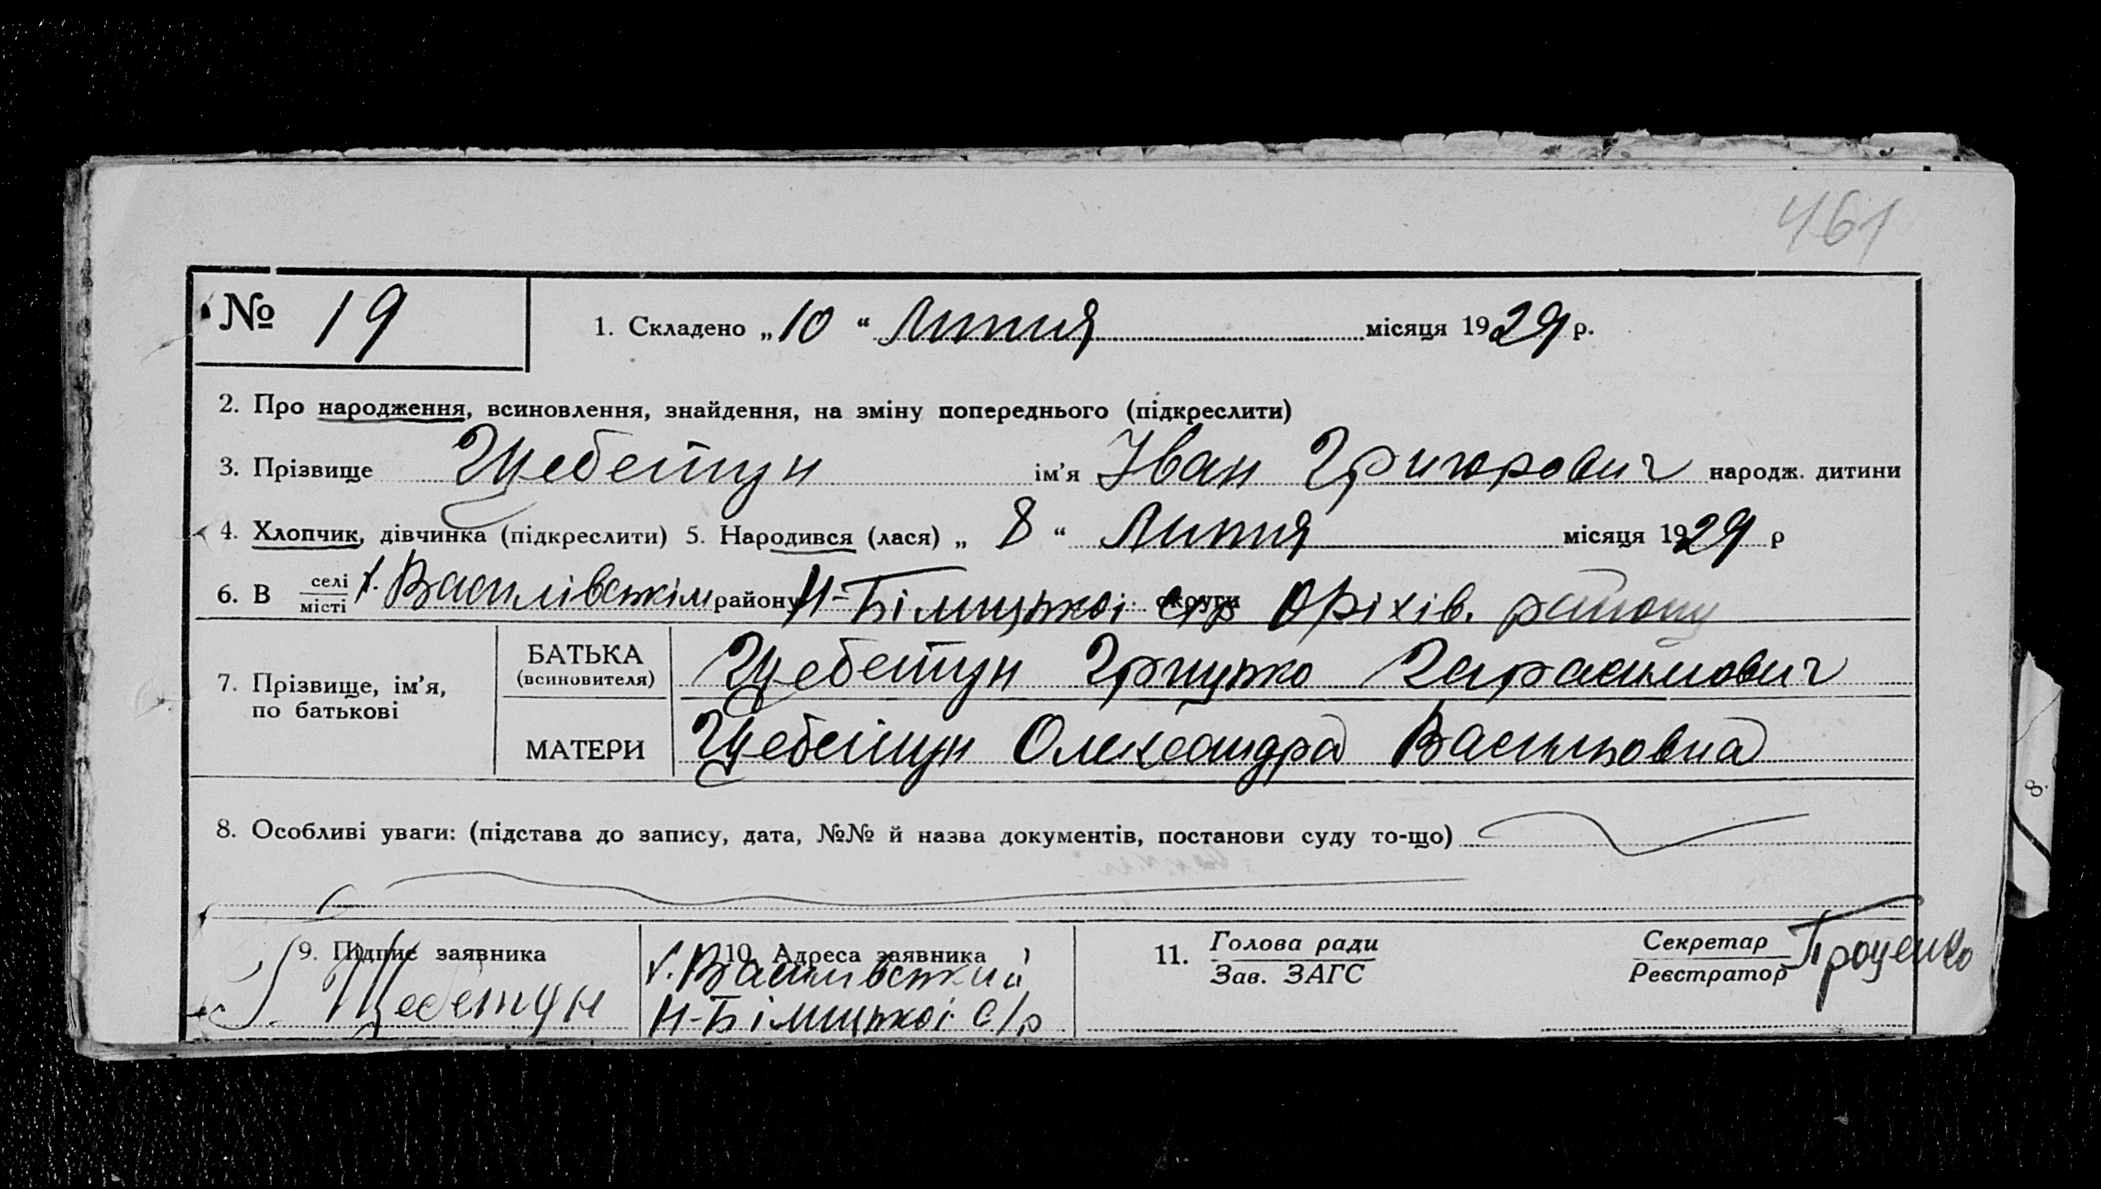 461
№ 19
1. Складено „10“ Липня місяця 1929 р.
2. Про народження, всиновлення, знайдення, на зміну попереднього (підкреслити)
3. Прізвище Щебетун ім'я Іван Григорович народж. дитини
4. Хлопчик, дівчинка (підкреслити) 5. Народився (лася) „ 8 “ Липня місяця 1929 р
6. В селі місті х. Василівськім району Н-Білицької округи с/р Оріхів. району
7. Прізвище, ім'я, по батькові
БАТЬКА (всиновителя) Щебетун Грицько Герасимович
МАТЕРИ Щебетун Олександра Васильовна
8. Особливі уваги: (підстава до запису, дата, №№ й назва документів, постанови суду то-що)
9. Підпис заявника
Щебетун
10. Адреса заявника
х. Василівський
Н-Білицької с/р
11. Голова ради
Зав. ЗАГС
Секретар
Реєстратор
Проценко
8.